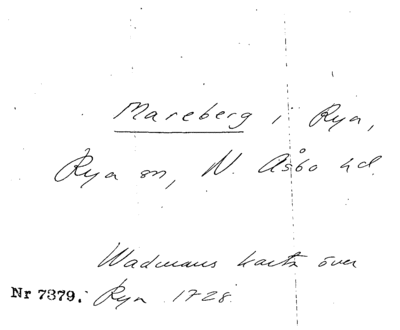 Mareberg i Rya,
Rya sn, N. Åsbo hd.
Wadmans karta över
Nr 7379. Rya 1728.